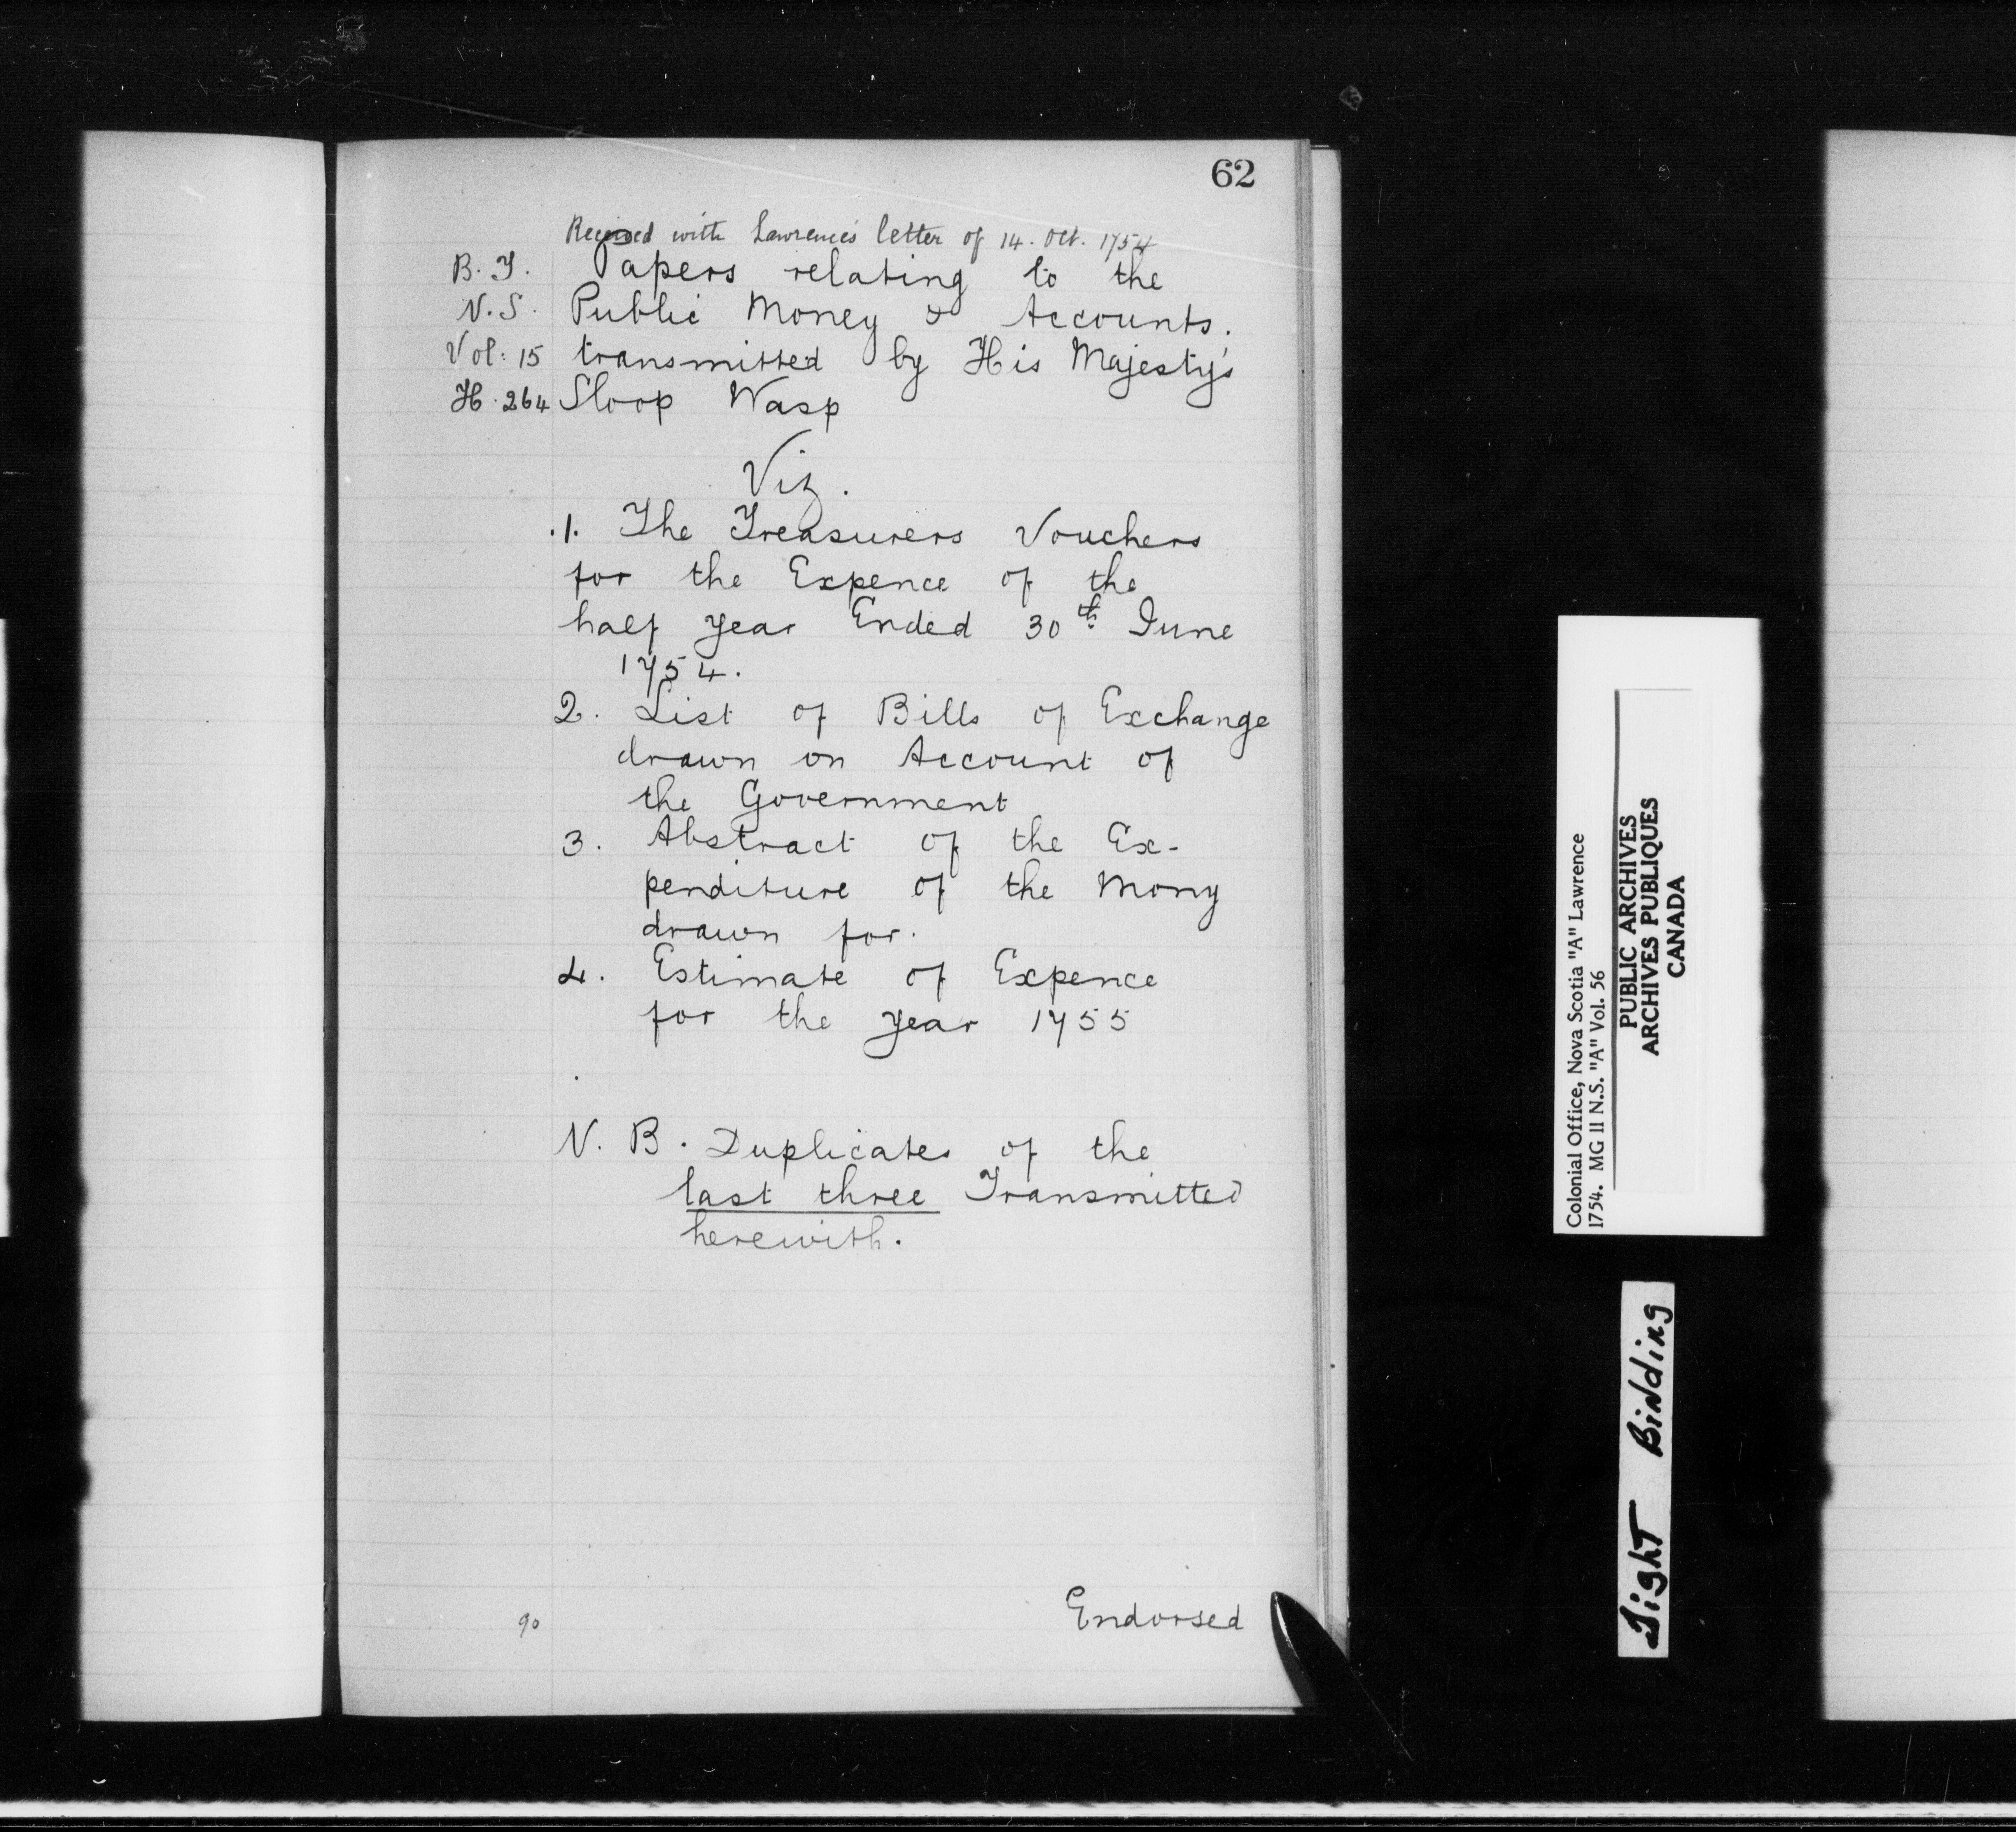 62
Received with Lawrence's letter of 14. Oct. 1754
B. T. Papers relating to the
N. S. Public Money & Accounts.
Vol: 15 transmitted by His Majesty's
H. 264 Sloop Wasp
Viz.
.1. The Treasurers Vouchers
for the Expence of the
half year Ended 30th June
1754.
2. List of Bills of Exchange
drawn on Account of
the Government
3. Abstract of the Ex-
penditure of the Mony
drawn for.
4. Estimate of Expence
for the year 1755
N. B. Duplicates of the
last three Transmitted
herewith.
90
Endorsed
Colonial Office, Nova Scotia "A" Lawrence
1754. MG II N.S. "A" Vol. 56
PUBLIC ARCHIVES
ARCHIVES PUBLIQUES
CANADA
Tight Binding